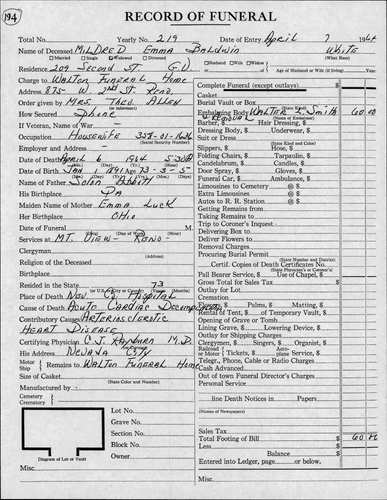 194
RECORD OF FUNERAL
Total No. Yearly No. 219 Date of Entry April 7 1964
Name of Deceased MILDRED Emma Baldwin White
(What Race)
Married Single Widowed Divorced Husband Wife Widow of
Residence 209 Second St. G.V. Age of Husband or Wife (if living) Years
Charge to WALTON FUNERAL Home
Address 875 W. 2nd St. Reno.
Order given by MRS. Theo. ALLEN
How Secured Phone
If Veteran, Name of War
Occupation Housewife
(Social Security Number)
Employer and Address
Date of Death April 6 1964 5:30 A.M.
Date of Birth Jan 1 1891 Age 73-3-5
Name of Father Solon Abbitt
His Birthplace PA
Maiden Name of Mother Emma Luck
Her Birthplace OHIO
Date of Funeral M.
Services at MT. View - Reno -
Clergyman
(Address)
Religion of the Deceased
Birthplace
Resided in the State 73
(or U.S., City or County)
Place of Death Nev Co Hospital
Cause of Death Acute Cardiac Decompensation
Contributory Causes Arteriosclerotic
Heart Disease
Certifying Physician C.J. M.D.
His Address Nevada City
Motor
Ship Remains to WALTON FUNERAL Home
Size of Casket
(State Color and Number)
Manufactured by
Cemetery
Crematory
Lot No.
Grave No.
Section No.
Block No.
Owner
Diagram of Lot or Vault
Misc.
Complete Funeral (except outlays) $
Casket
Burial Vault or Box
(State Kind)
Embalming Body Walter L. Smith 60 00
& Removal
Barber, $ Hair Dressing, $
Dressing Body, $ Underwear, $
Suit or Dress
(State Kind and Color)
Slippers, $ Hose, $
Folding Chairs, $ Tarpaulin, $
Candelabrum, $ Candles, $
Door Spray, $ Gloves, $
Funeral Car, $ Ambulance, $
Limousines to Cemetery @ $
Extra Limousines @ $
Autos to R. R. Station @ $
Getting Remains from
Taking Remains to
Trip to Coroner's Inquest
Delivering Box to
Deliver Flowers to
Removal Charges
Procuring Burial Permit
(State Number and District)
Certif. Copies of Death Certificates No.
(State Physician's or Coroner's)
Pall Bearer Service, $ Use of Chapel, $
Gross Total for Sales Tax $
Outlay for Lot
Cremation
Flowers, $ Palms, $ Matting, $
Rental of Tent, $ of Temporary Vault, $
Opening of Grave or Tomb
Lining Grave, $ Lowering Device, $
Outlay for Shipping Charges
Clergymen, $ Singers, $ Organist, $
Railroad or Motor Tickets, $ Aeroplane Service, $
Telegr., Phone, Cable or Radio Charges
Cash Advanced
Out of town Funeral Director's Charges
Personal Service
line Death Notices in Papers
(Names of Newspapers)
Sales Tax
Total Footing of Bill $ 60 00
Less $
Balance $
Entered into Ledger, page or below.
Misc.